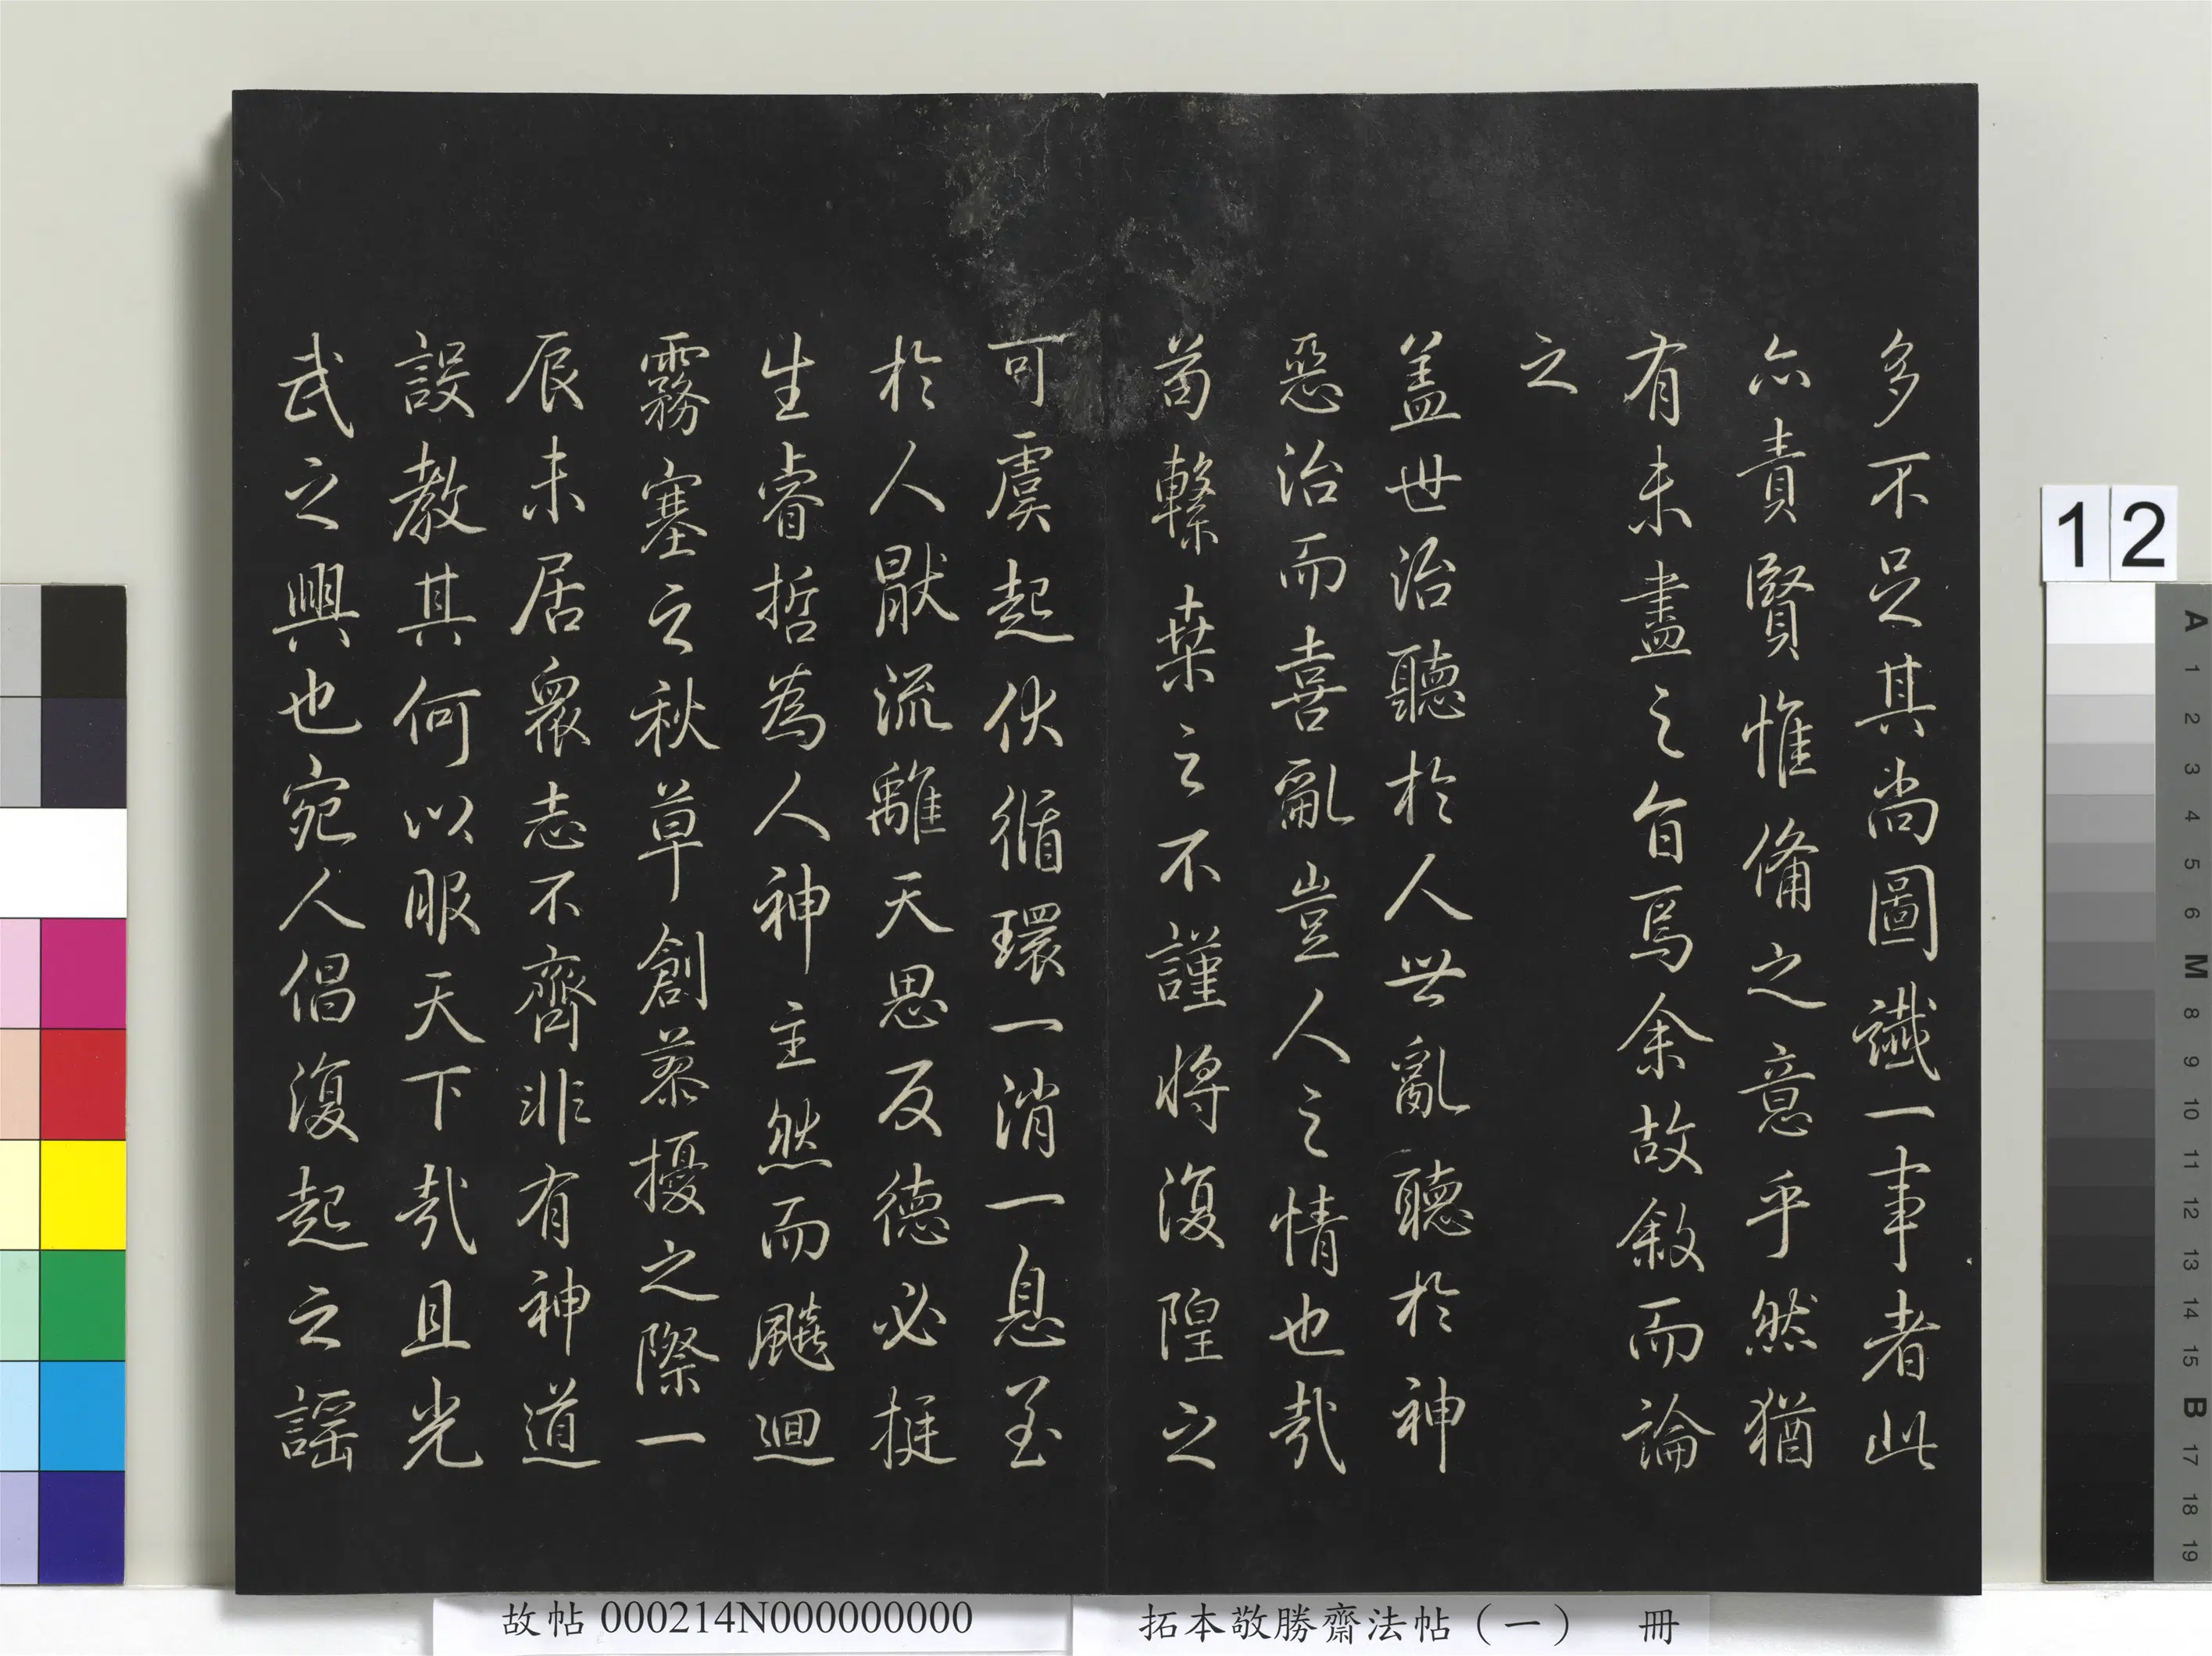 多不足其尚圖讖一事者此
亦責賢惟備之意乎然猶
有未盡之旨焉余故敘而論
之
蓋世治聽於人世亂聽於神
惡治而喜亂豈人之情也哉
苟繫桑之不謹將復隍之
可虞起伏循環一消一息至
於人厭流離天思反德必挺
生睿哲為人神主然而飈迴
霧塞之秋草創蓁擾之際一
辰未居衆志不齊非有神道
設教其何以服天下哉且光
武之興也宛人倡復起之謡
12
A 1 2 3 4 5 6 M 8 9 10 11 12 13 14 15 B 17 18 19
故帖 000214N000000000
拓本敬勝齋法帖（一） 冊